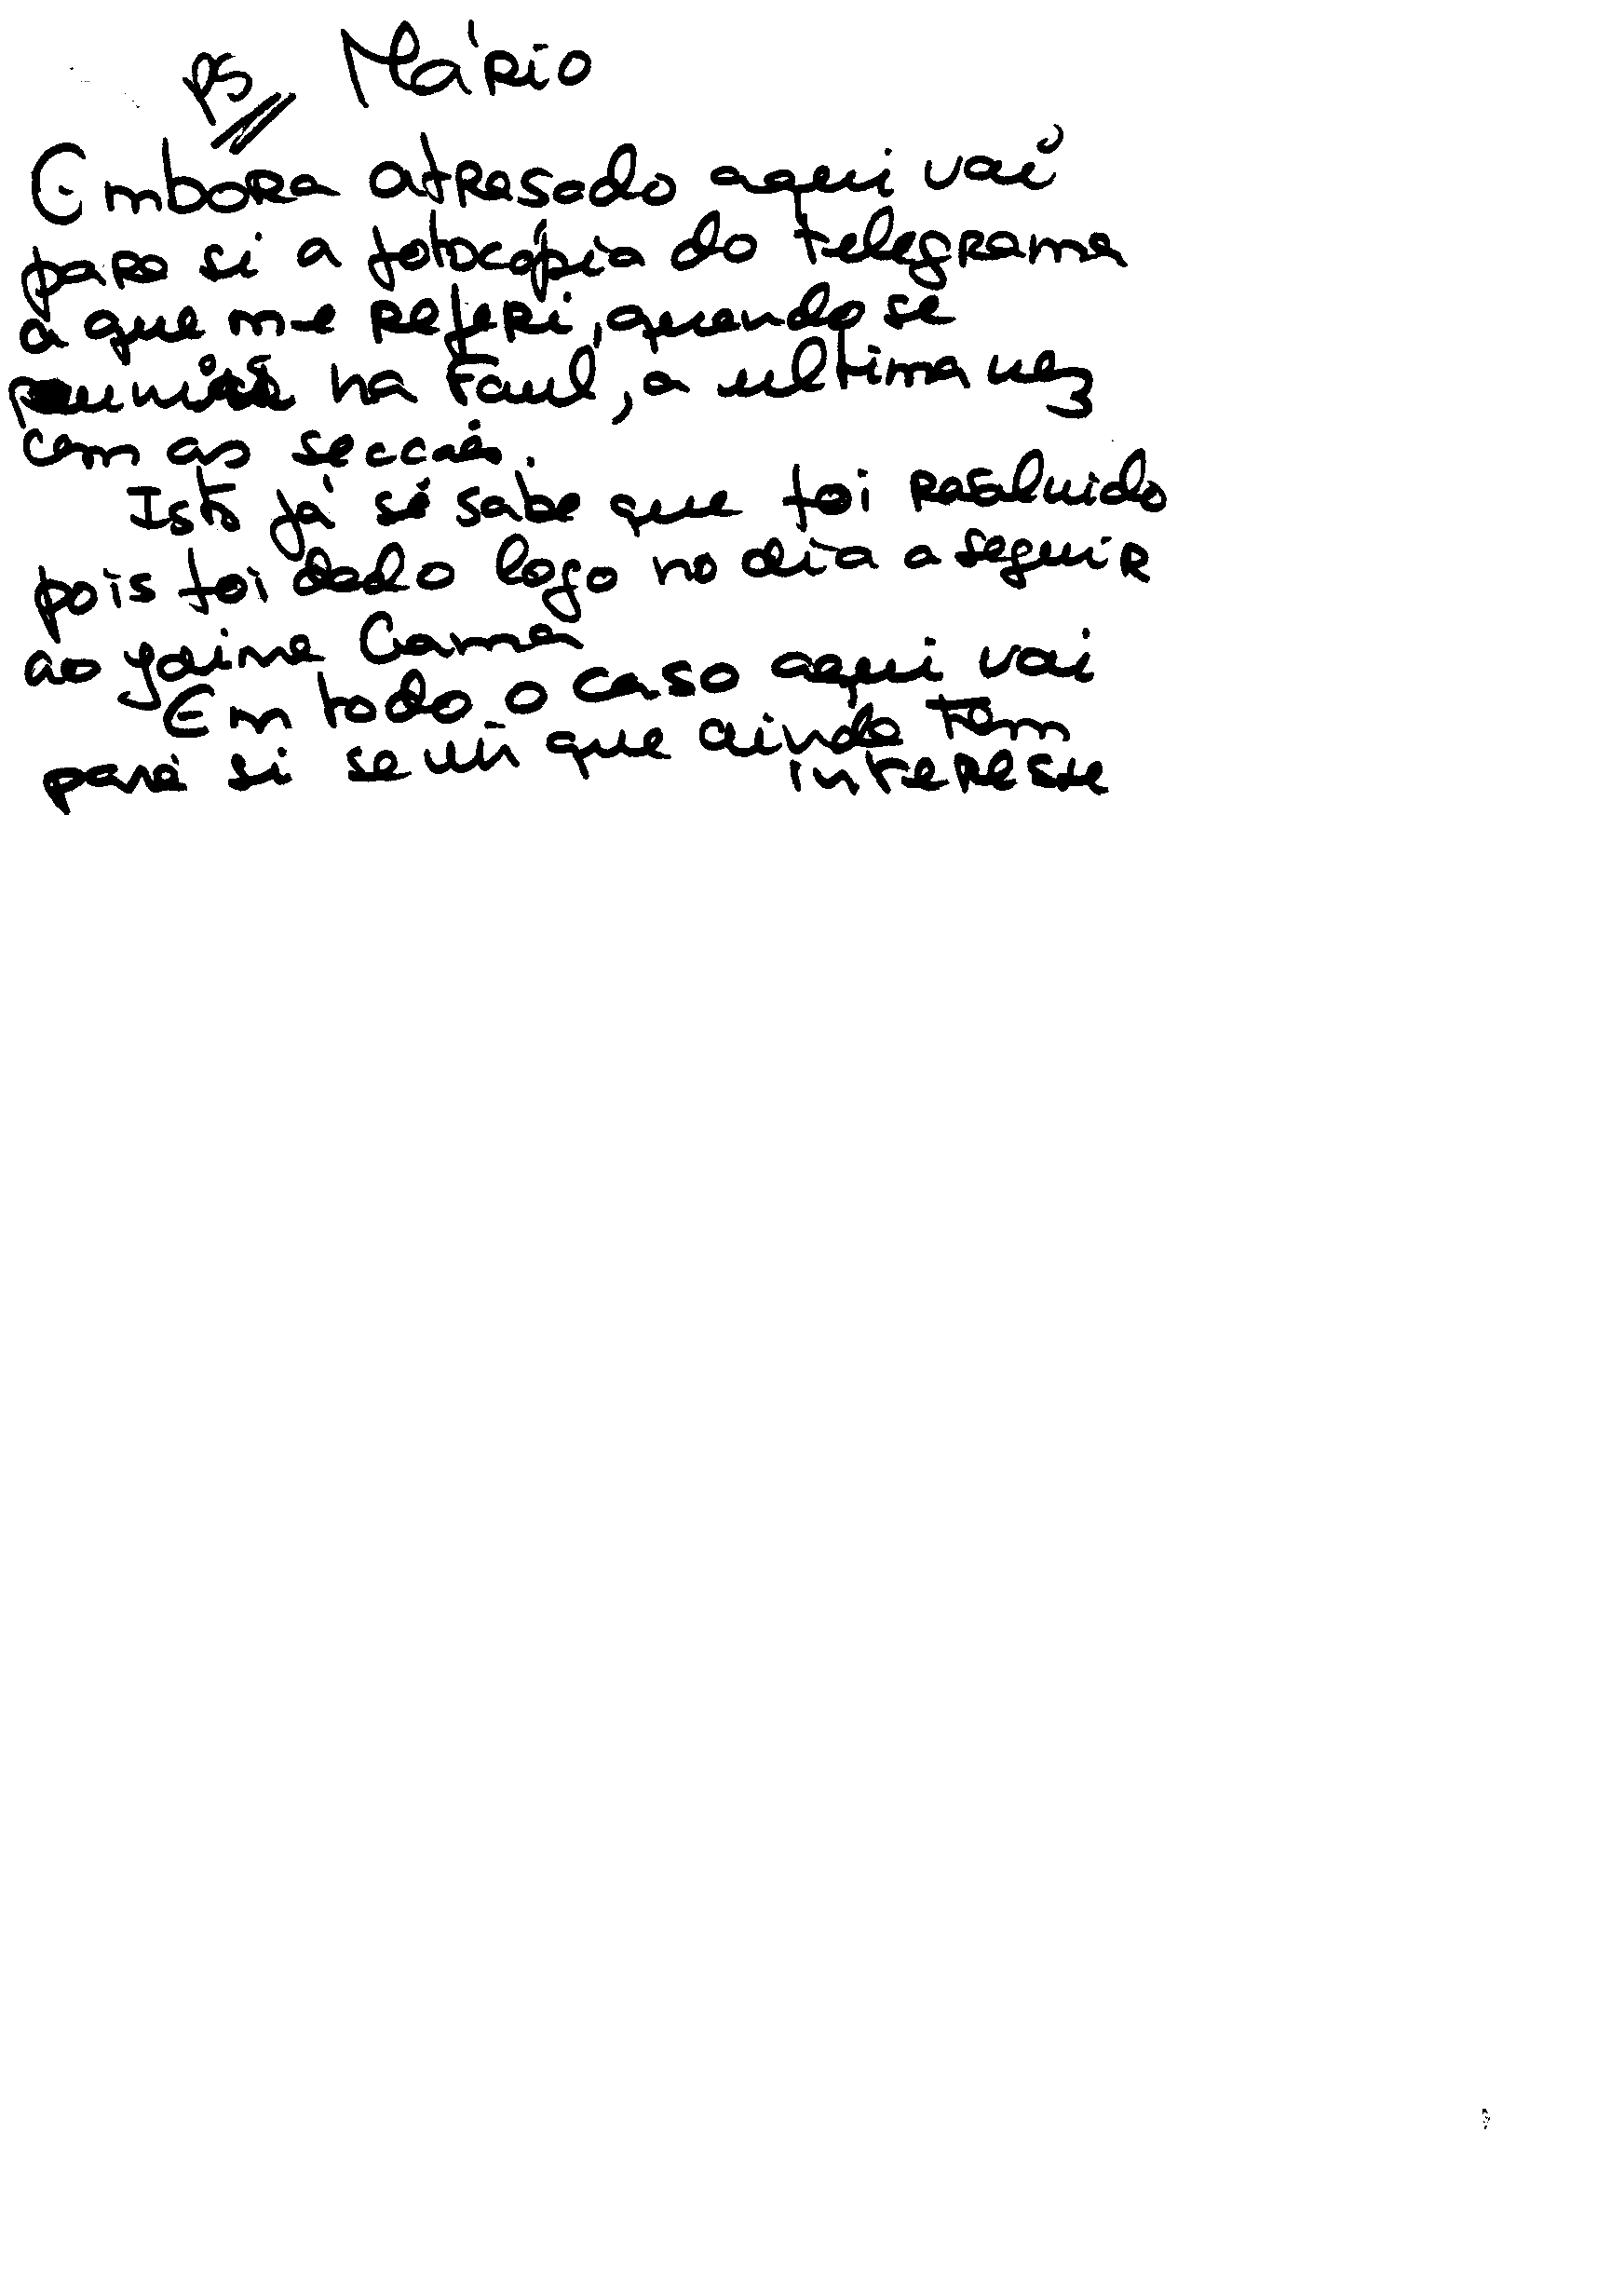 PS Mário
Embora atrasado aqui vai
para si a fotocópia do telegrama
a que me referi, quando se
na Faul, a ultima vez
com as secções.
Isto já se sabe que foi resoluido
pois foi dado logo no dia a seguir
ao Jaime Gama
Em todo o caso aqui vai
para si se uir que ainda tem
interesse